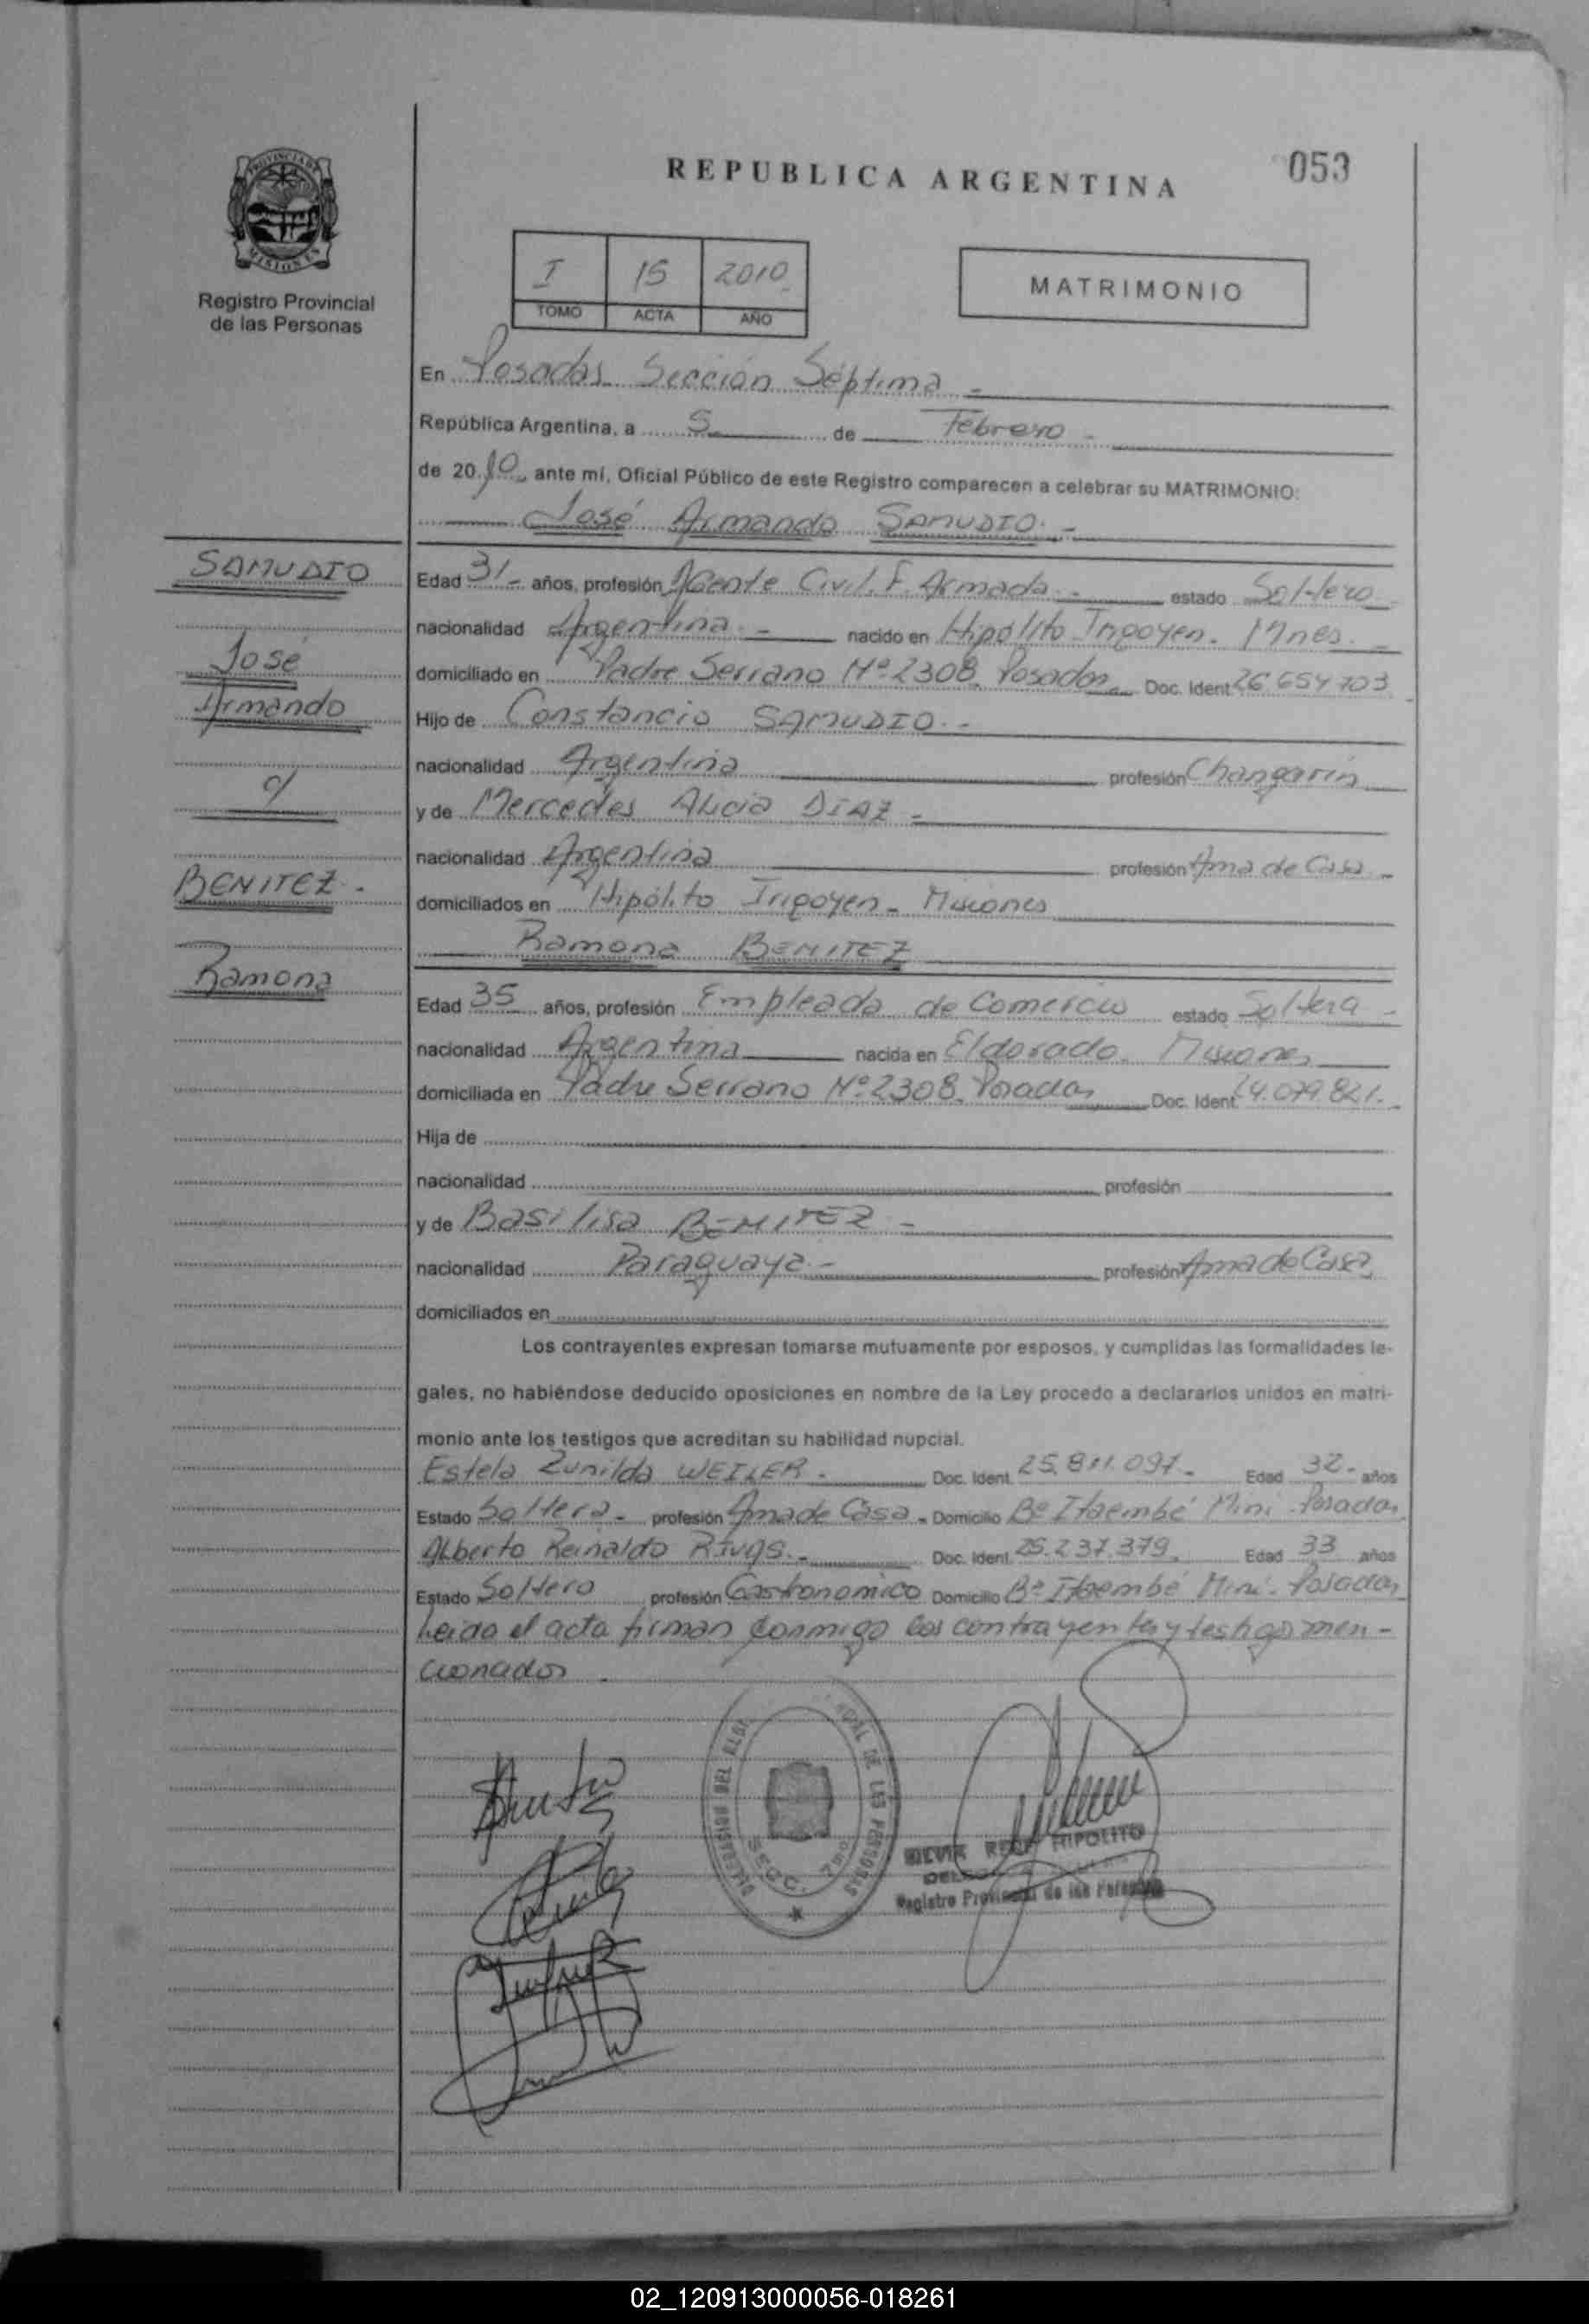 REPUBLICA ARGENTINA
053
PROVINCIA DE
MISIONES
Registro Provincial
de las Personas
I 15 2010
TOMO ACTA AÑO
MATRIMONIO
En Posadas Sección Séptima -
República Argentina, a 5 de Febrero -
de 2010 ante mí, Oficial Público de este Registro comparecen a celebrar su MATRIMONIO:
José Armando SAMUDIO. -
SAMUDIO
José
Armando
c/
BENITEZ.
Ramona
Edad 31- años, profesión Agente Civil. F. Armada - estado Soltero
nacionalidad Argentina. - nacido en Hipólito Irigoyen. Mnes. -
domiciliado en Padre Serrano Nº 2308. Posadas. Doc. Ident 26 654 703
Hijo de Constancio SAMUDIO. -
nacionalidad Argentina profesión Changarin
y de Mercedes Alicia DIAZ -
nacionalidad Argentina profesión Ama de Casa -
domiciliados en Hipólito Irigoyen - Misiones
Ramona BENITEZ
Edad 35 años, profesión Empleada de Comercio estado Soltera -
nacionalidad Argentina nacida en Eldorado. Misiones
domiciliada en Padre Serrano Nº 2308. Posadas Doc. Ident. 24.079.821.-
Hija de
nacionalidad profesión
y de Basilisa BENITEZ -
nacionalidad Paraguaya - profesión Ama de Casa
domiciliados en
Los contrayentes expresan tomarse mutuamente por esposos, y cumplidas las formalidades le-
gales, no habiéndose deducido oposiciones en nombre de la Ley procedo a declararlos unidos en matri-
monio ante los testigos que acreditan su habilidad nupcial.
Estela Zunilda WEILER - Doc. Ident. 25.811.097- Edad 32- años
Estado Soltera - profesión Ama de Casa - Domicilio Bº Itaembé Mini Posadas
Alberto Reinaldo RIVAS. - Doc. Ident. 25.237.379. Edad 33 años
Estado Soltero profesión Gastronomico Domicilio Bº Itaembé Mini. Posadas
Leida el acta firman conmigo los contrayentes y testigo men-
cionados
DE LAS PERSONAS
SECC. 7ma
SILVIA HIPOLITO
Registro Provincial de las Personas
02_120913000056-018261